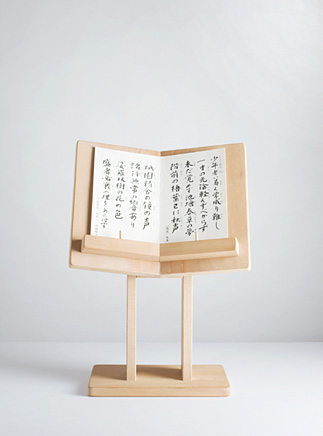 少年老い易く学成り難し
一寸の光陰軽んずべからず
未だ覚めず池塘春草の夢
階前の梧葉已に秋声
祇園精舎の鐘の声
諸行無常の響あり
沙羅双樹の花の色
盛者必衰の理をあらはす